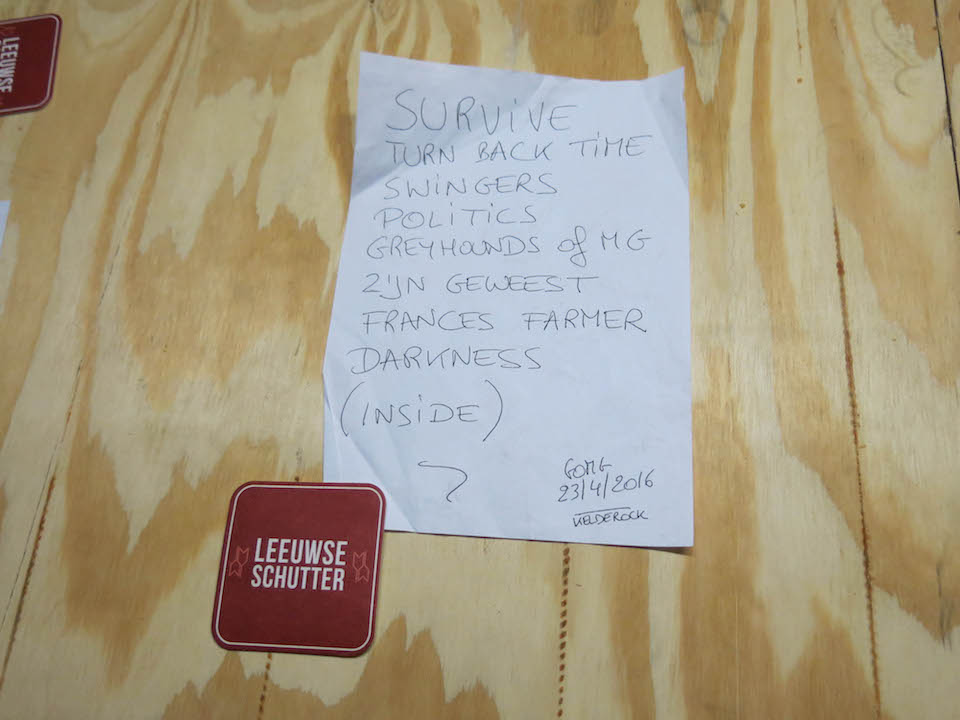 LEEUWSE
SURVIVE
TURN BACK TIME
SWINGERS
POLITICS
GREYHOUNDS of MG
ZIJN GEWEEST
FRANCES FARMER
DARKNESS
(INSIDE)
GOMG
23/4/2016
KELDEROCK
LEEUWSE
SCHUTTER